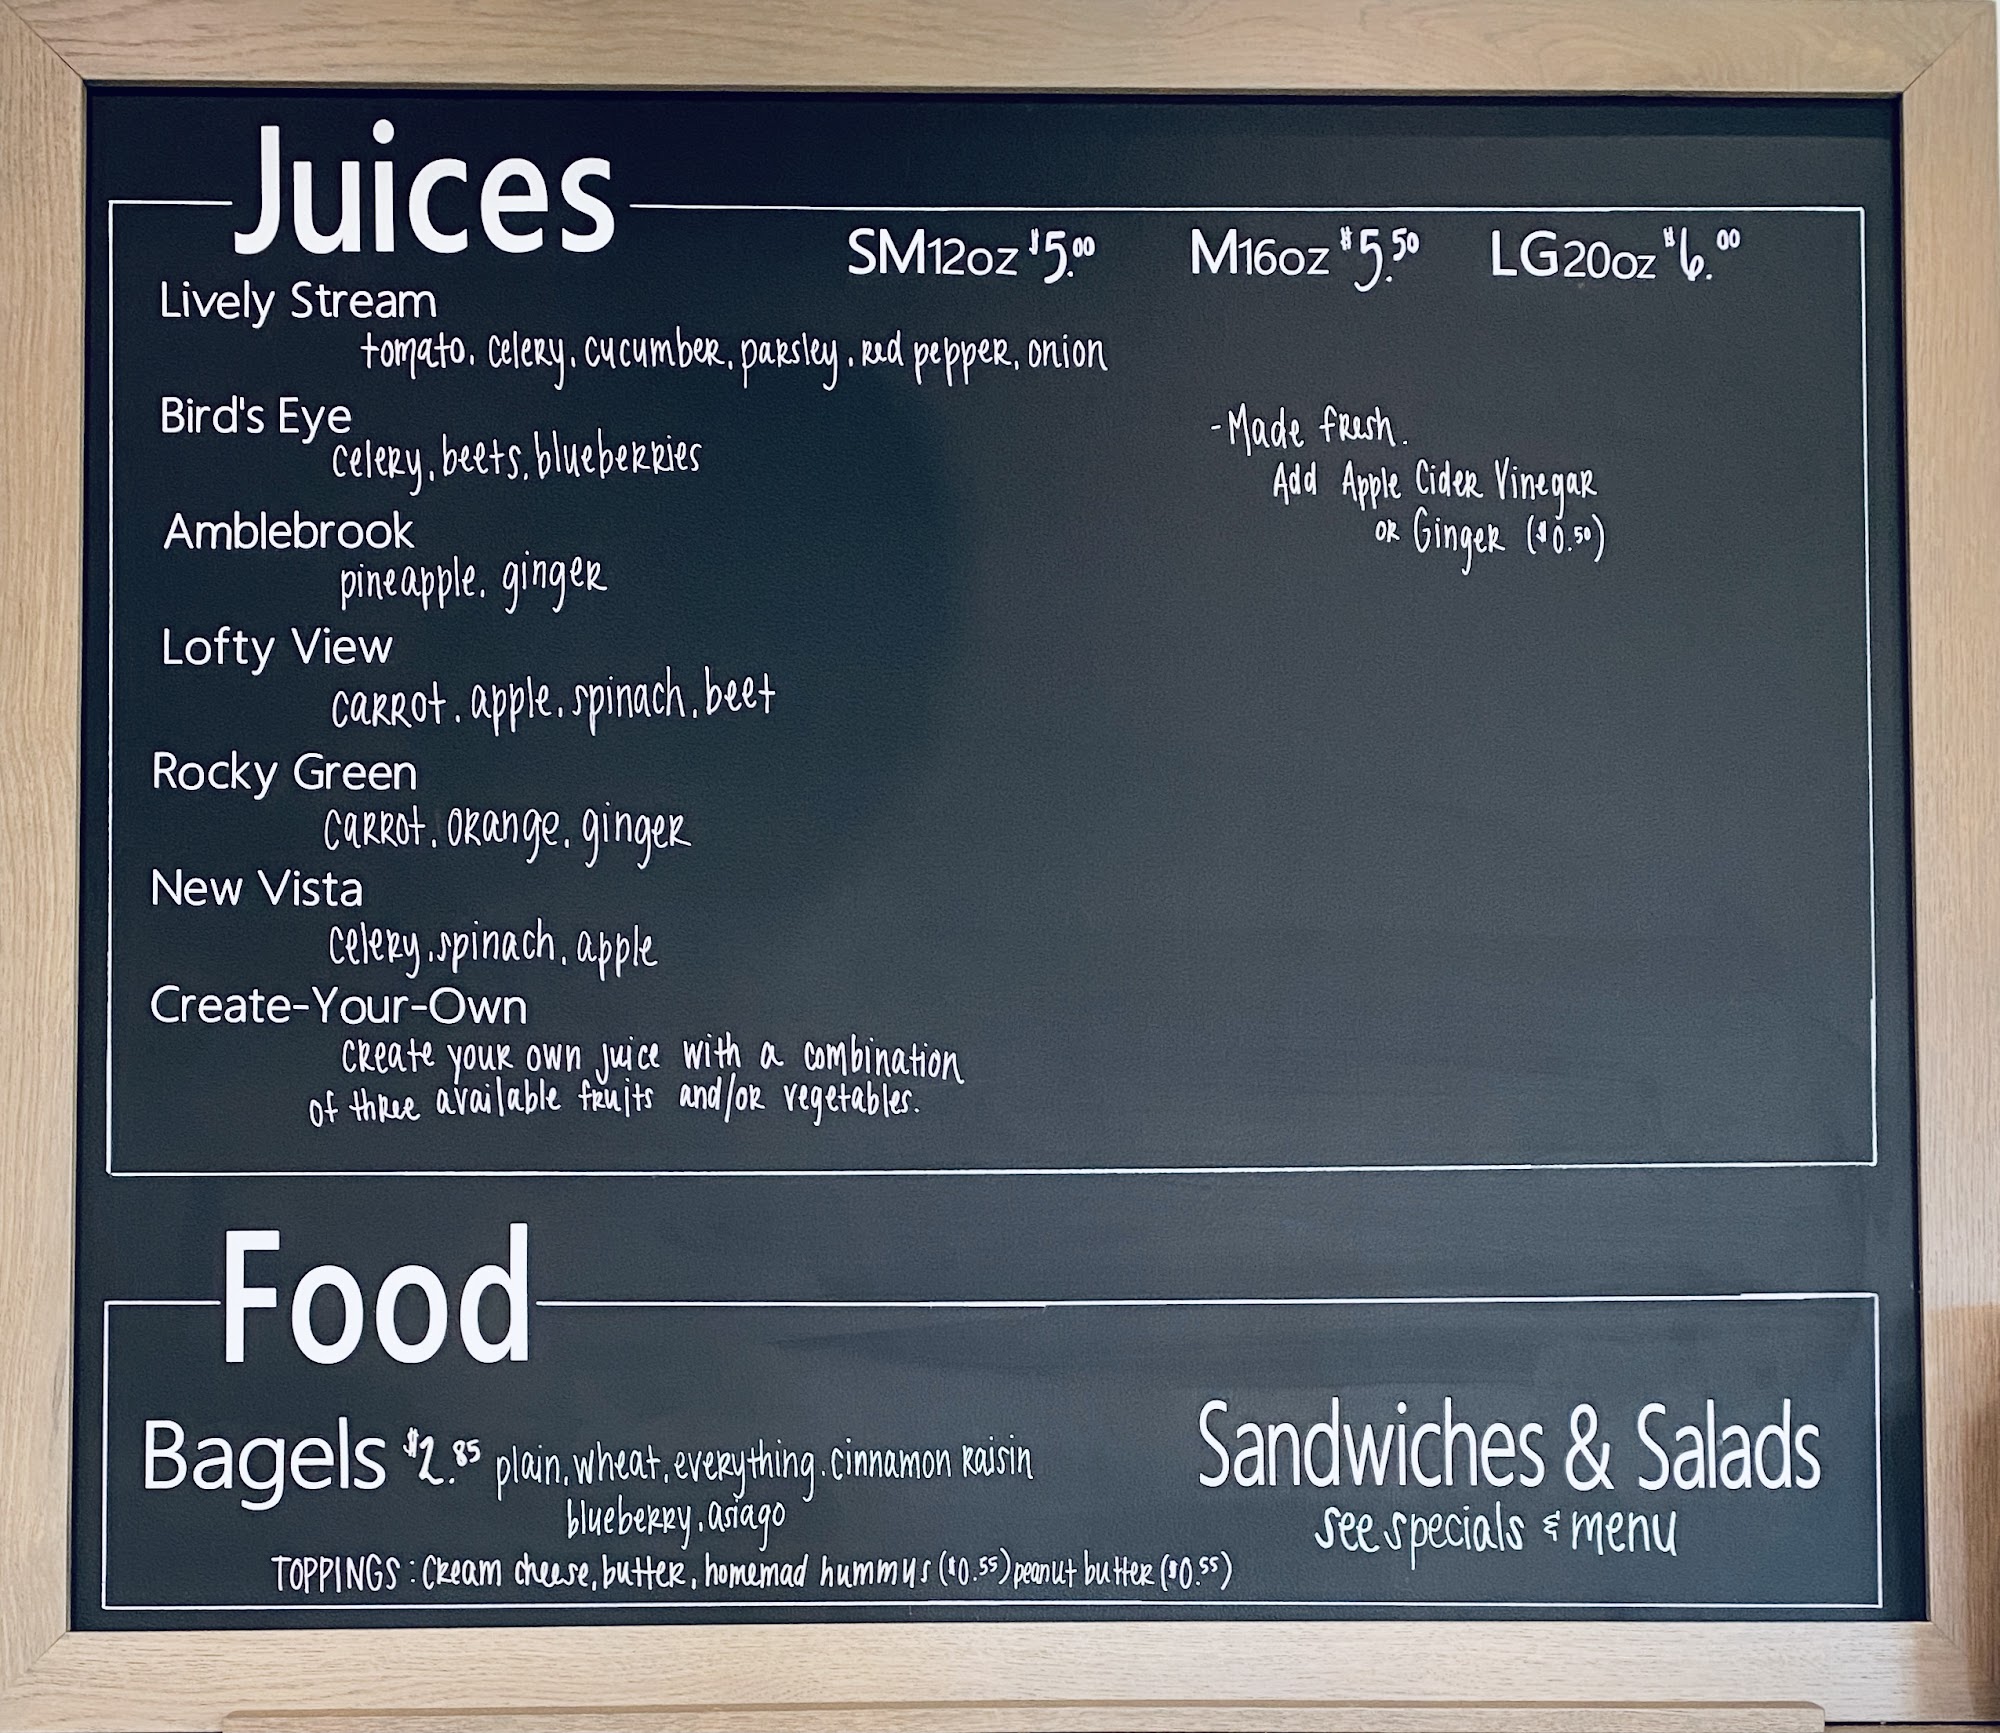 Juices
SM12oz $5.00 M16oz $5.50 LG20oz $6.00
Lively Stream
tomato, celery, cucumber, parsley, red pepper, onion
Bird's Eye
celery, beets, blueberries
-Made fresh.
Add Apple Cider Vinegar
or Ginger ($0.50)
Amblebrook
pineapple, ginger
Lofty View
carrot, apple, spinach, beet
Rocky Green
carrot, orange, ginger
New Vista
celery, spinach, apple
Create-Your-Own
create your own juice with a combination
of three available fruits and/or vegetables.
Food
Bagels $2.85 plain, wheat, everything, cinnamon raisin
blueberry, asiago
TOPPINGS: Cream cheese, butter, homemad hummus ($0.55) peanut butter ($0.55)
Sandwiches & Salads
see specials & menu